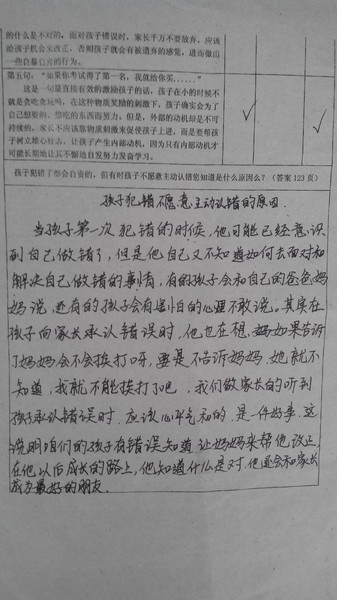 的什么是不对的，面对孩子错误时，家长千万不要放弃，应该
给孩子机会来改正，否则孩子就会有被遗弃的感觉，进而做出
一些自暴自弃的行为。
第五句：“如果你考试得了第一名，我就给你买……”
这是一句最直接有效的激励孩子的话，孩子在小的时候不
就是贪吃贪玩吗，在这种物质奖励的刺激下，孩子确实会为了
自己想要的、想吃的东西而努力。但是，外部的动机却是不可
持续的，家长不应该靠物质刺激来促使孩子上进，而是要帮孩
子树立雄心壮志，让孩子产生内部动机，因为只有内部动机才
可能长期地让其不懈地自发努力发奋学习。
孩子犯错了都会自责的，但有时孩子不愿意主动认错您知道是什么原因么？（答案 123 页）
孩子犯错不愿意主动认错的原因.
当孩子第一次犯错的时候，他可能已经意识
到自己做错了，但是他自己又不知道如何去面对和
解决自己做错的事情，有的孩子会和自己的爸爸妈
妈说，还有的孩子会有害怕的心理不敢说。其实在
孩子向家长承认错误时，他也在想，妈如果告诉
了妈妈会不会挨打呀，要是不告诉妈妈，她就不
知道，我就不能挨打了吧，我们做家长的听到
孩子承认错误时，应该心平气和的，是一件好事，这
说明咱们的孩子有错误知道让妈妈来帮他改正，
在他以后成长的路上，他知道什么是对，他还会和家长
成为最好的朋友.